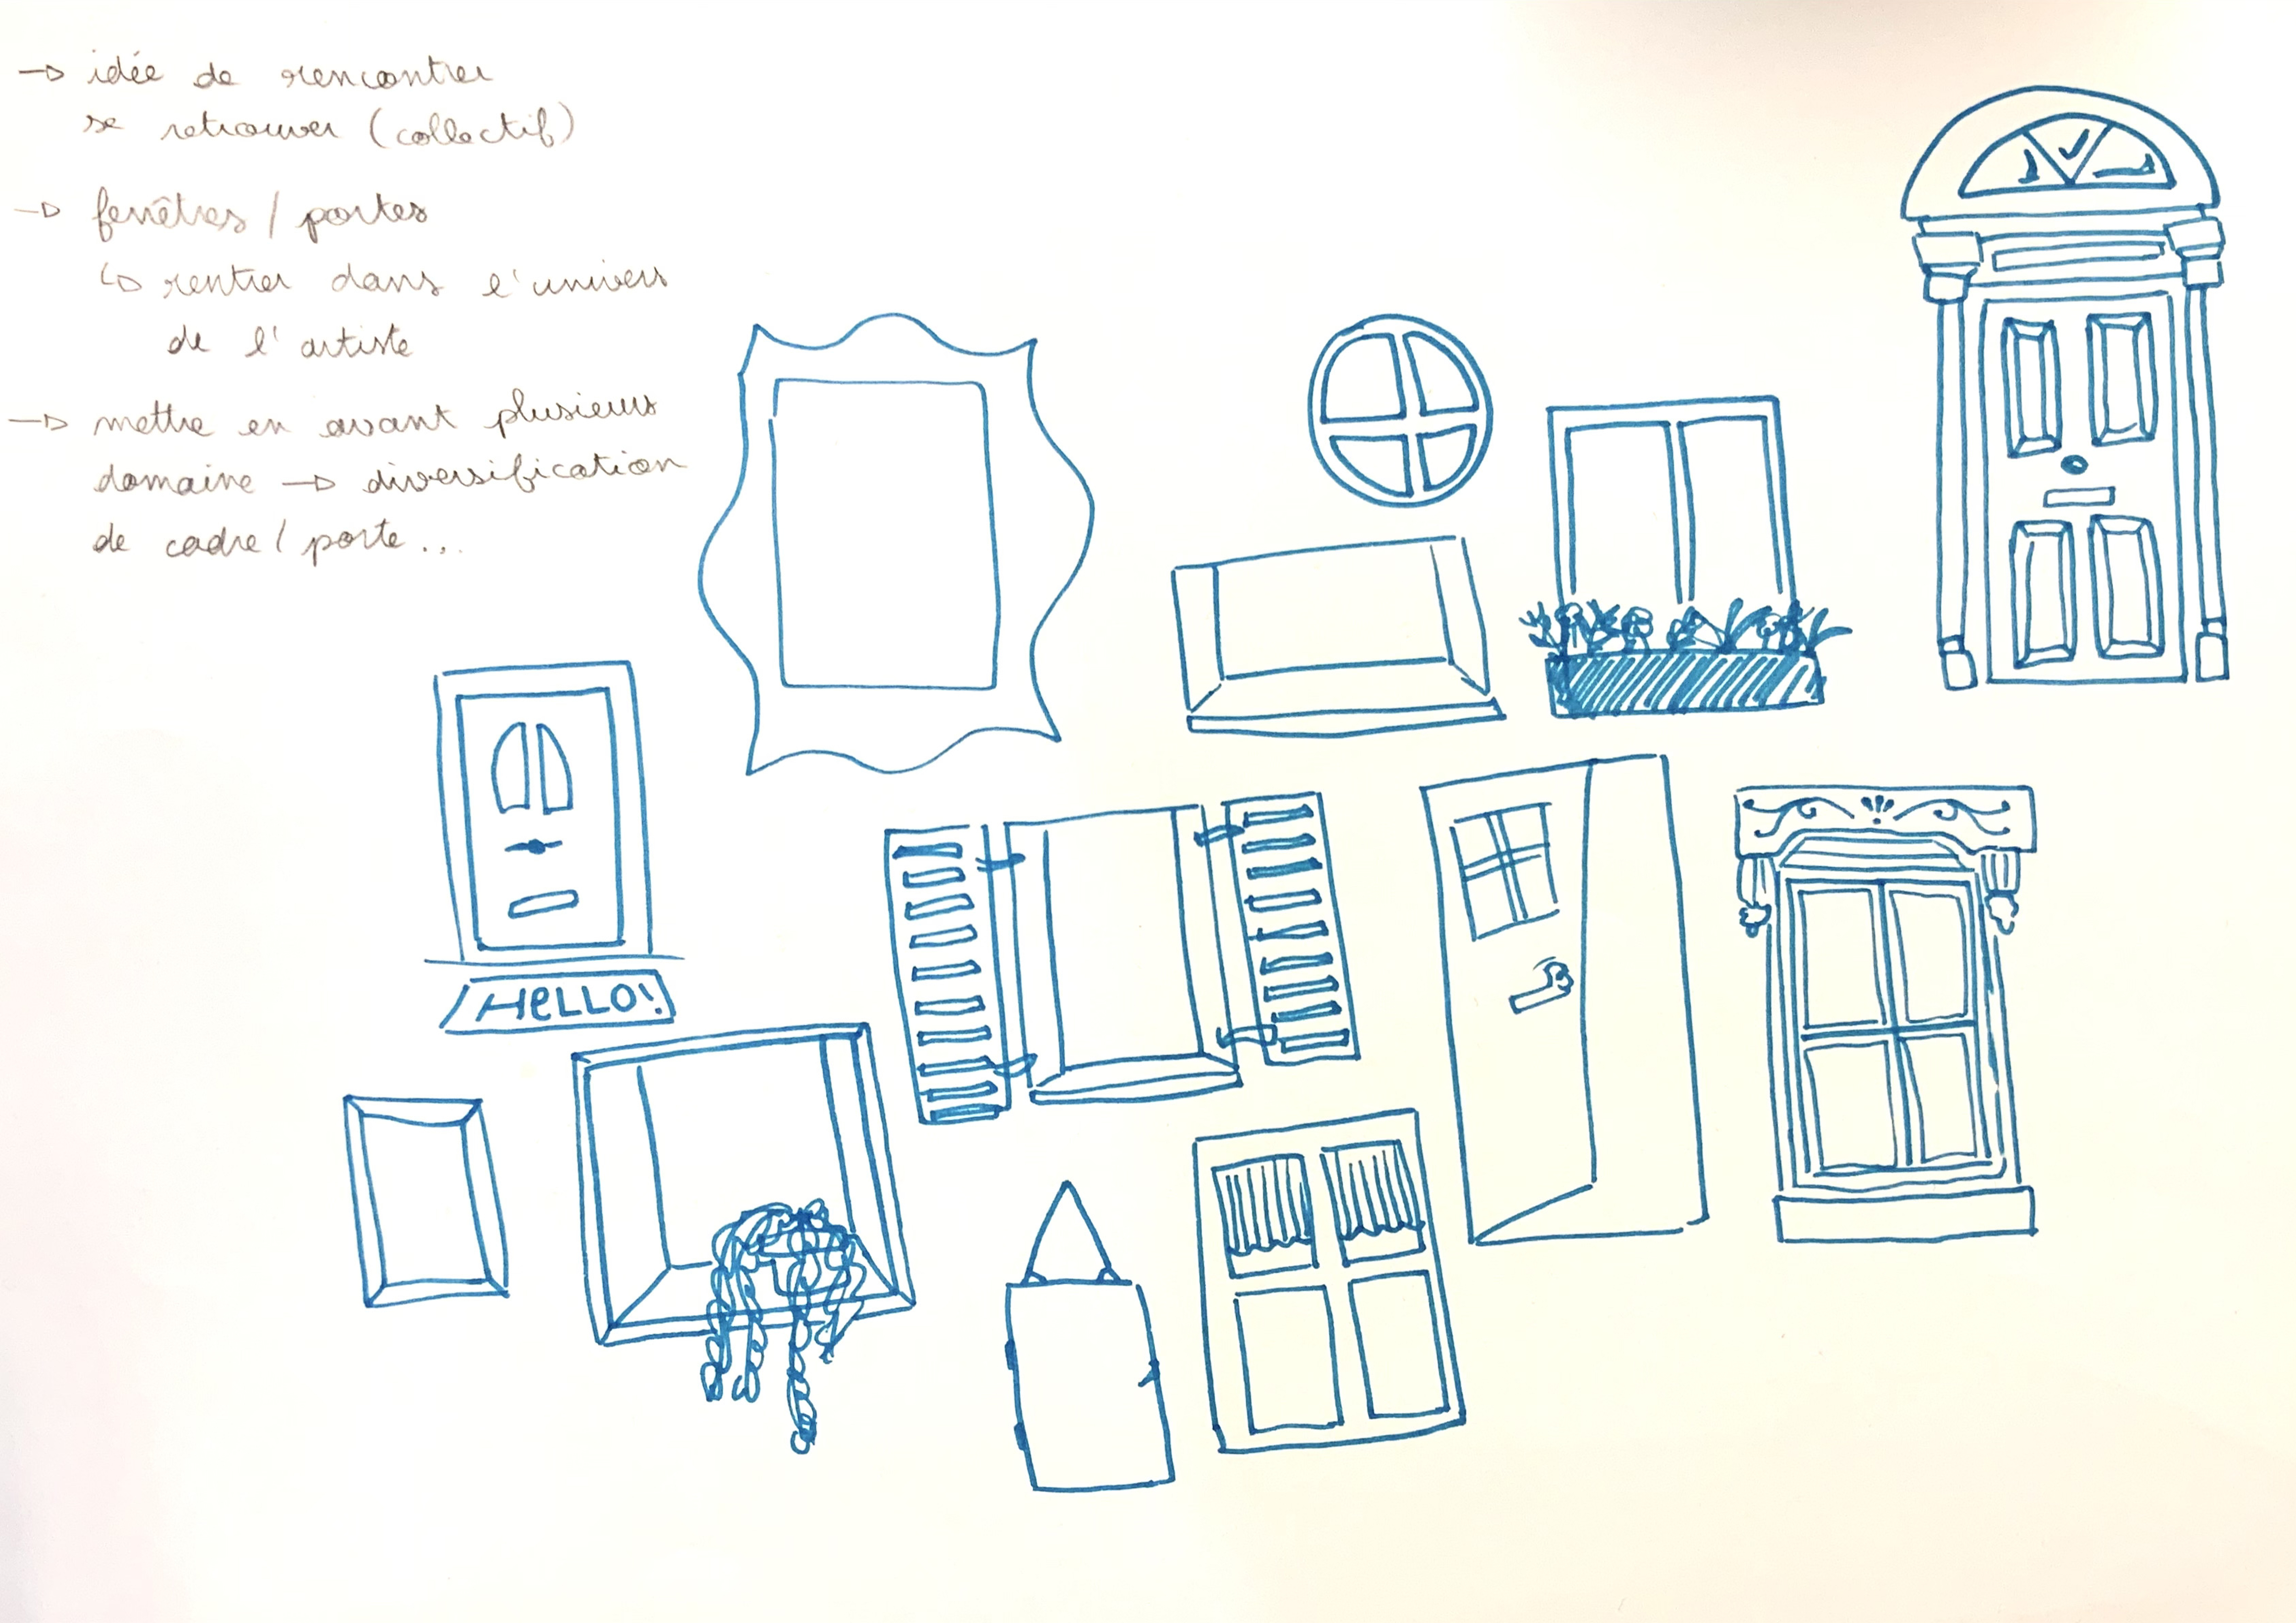 → idée de rencontrer
se retrouver (collectif)
→ fenêtres / portes
↳ rentrer dans l'univers
de l'artiste
→ mettre en avant plusieurs
domaine → diversification
de cadre / porte...
HeLLO!